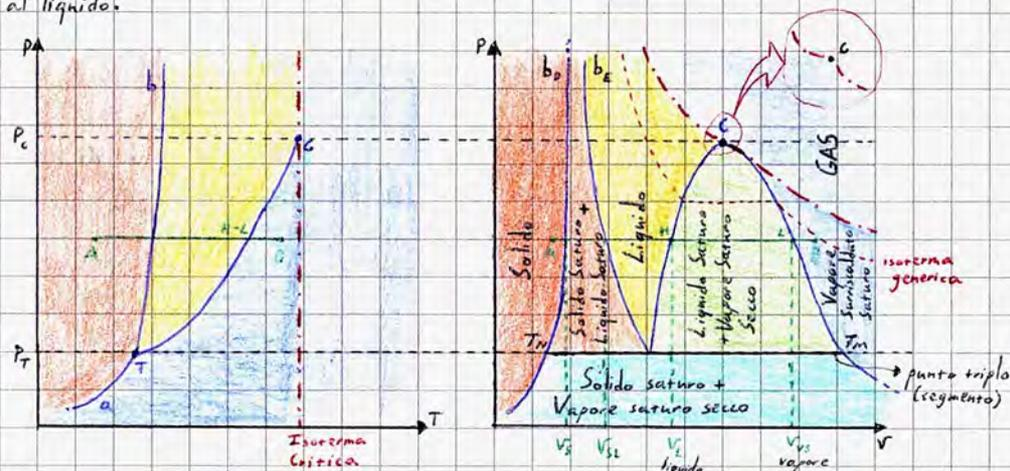 al liquido.
P
b
P_c
C
A
H-L
D
P_T
T
a
T
Isoterma
Critica
P
b_D
b_E
C
C
GAS
Solido
Solido Saturo +
Liquido Saturo
Liquido
Liquido Saturo
+ Vapore Saturo
Secco
Vapore
Surriscaldato
Saturo
H
L
isoterma
generica
T_N
punto triplo
(segmento)
Solido saturo +
Vapore saturo secco
V_S
V_SL
V_L
V_VS
v
liquido
vapore